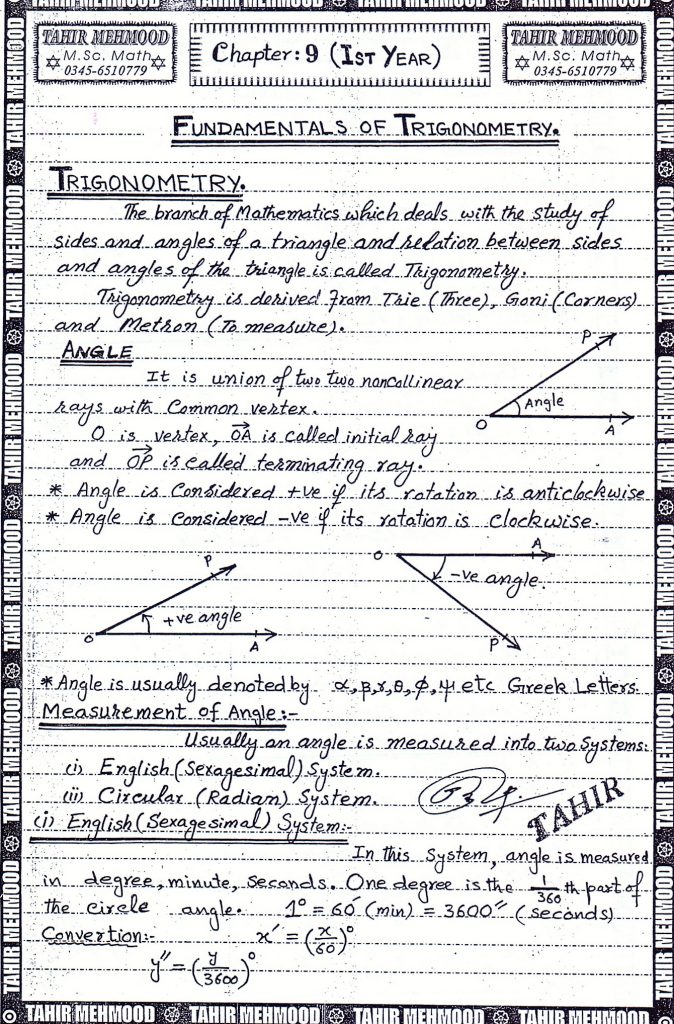 TAHIR MEHMOOD
M.Sc. Math
0345-6510779
Chapter: 9 (IST YEAR)
TAHIR MEHMOOD
M.Sc. Math
0345-6510779
FUNDAMENTALS OF TRIGONOMETRY.
TRIGONOMETRY.
The branch of Mathematics which deals with the study of
sides and angles of a triangle and relation between sides
and angles of the triangle is called Trigonometry.
Trigonometry is derived from Trie (Three), Goni (Corners)
and Metron (To measure).
ANGLE
It is union of two two noncollinear
rays with Common vertex.
O is vertex, OA→ is called initial ray
and OP→ is called terminating ray.
P
Angle
O
A
* Angle is Considered +ve if its rotation is anticlockwise
* Angle is Considered -ve if its rotation is clockwise.
P
+ve angle
O
A
O
A
-ve angle.
P
* Angle is usually denoted by α, β, γ, θ, φ, ψ etc Greek Letters.
Measurement of Angle:-
Usually an angle is measured into two Systems:
(i) English (Sexagesimal) System.
(ii) Circular (Radian) System.
TAHIR
(i) English (Sexagesimal) System:-
In this System, angle is measured
in degree, minute, Seconds. One degree is the 1/360 th part of
the circle angle. 1° = 60′ (min) = 3600″ (seconds)
Convertion:- x′ = (x/60)°
y″ = (y/3600)°
TAHIR MEHMOOD TAHIR MEHMOOD TAHIR MEHMOOD TAHIR MEHMOOD